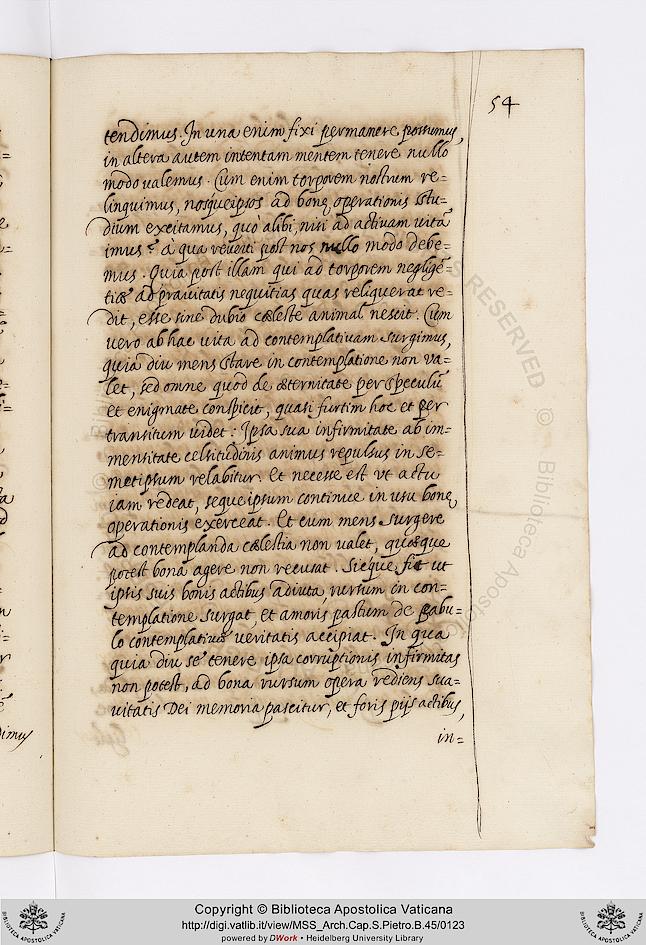 54
tendimus. In una enim fixi permanere possumus,
in altera autem intentam mentem tenere nullo
modo valemus. Cum enim torporem nostrum re=
linquimus, nosqueipsos ad bonę operationis stu=
dium excitamus, quò alibi, nisi ad activam vitã
imus? à qua reverti post nos nullo modo debe=
mus. Quia post illam qui ad torporem negligẽ=
tiæ ad pravitatis nequitias quas reliquerat re=
dit, esse sine dubio cæleste animal nescit. Cum
vero ab hac vita ad contemplativam surgimus,
quia diu mens stare in contemplatione non va=
let, sed omne quod de æternitate per speculũ
et enigmate conspicit, quasi furtim hoc et per
transitum videt: Ipsa sua infirmitate ab im=
mensitate celsitudinis animus repulsus in se=
metipsum relabitur. Et necesse est vt actu
iam redeat, seque ipsum continue in usu bonę
operationis exerceat. Et cum mens surgere
ad contemplanda cælestia non valet, quæque
potest bona agere non recusat. Sicque fit ut
ipsis suis bonis actibus adiuta, rursum in con=
templatione surgat, et amoris pastum de pabu=
lo contemplativæ veritatis accipiat. In qua
quia diu se tenere ipsa corruptionis infirmitas
non potest, ad bona rursum opera rediens sua=
vitatis Dei memoria pascitur, et foris pijs actibus,
in=
dimus
RESERVED © Biblioteca Apostolic
Copyright © Biblioteca Apostolica Vaticana
http://digi.vatlib.it/view/MSS_Arch.Cap.S.Pietro.B.45/0123
powered by DWork • Heidelberg University Library